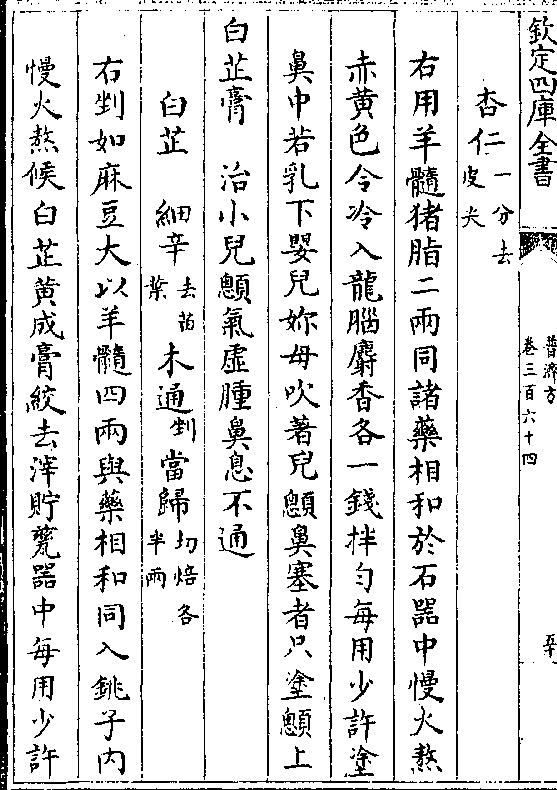 欽定四庫全書
普濟方
卷三百六十四
五十
杏仁一分去皮尖
右用羊髓猪脂二兩同諸藥相和於石器中慢火熬
赤黄色令冷入龍腦麝香各一錢拌匀每用少許塗
鼻中若乳下嬰兒妳母吹著兒顖鼻塞者只塗顖上
白芷膏 治小兒顖氣虚腫鼻息不通
白芷 細辛去苗葉 木通剉 當歸切焙各半兩
右剉如麻豆大以羊髓四兩與藥相和同入銚子内
慢火熬候白芷黄成膏絞去滓貯甆器中每用少許